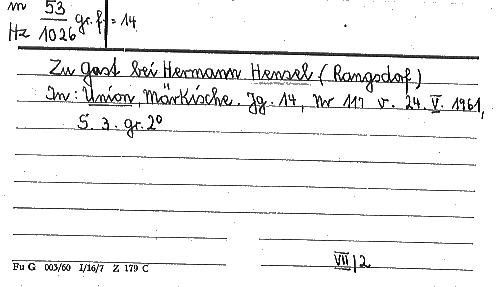 m 53 gr. f = 14
Hz 1026
Zu Gast bei Hermann Hensel (Rangsdorf)
In: Union, Märkische. Jg. 14, Nr 117 v. 24. V. 1961,
S. 3. gr. 2°
VII/2
Fu G 003/60 I/16/7 Z 179 C